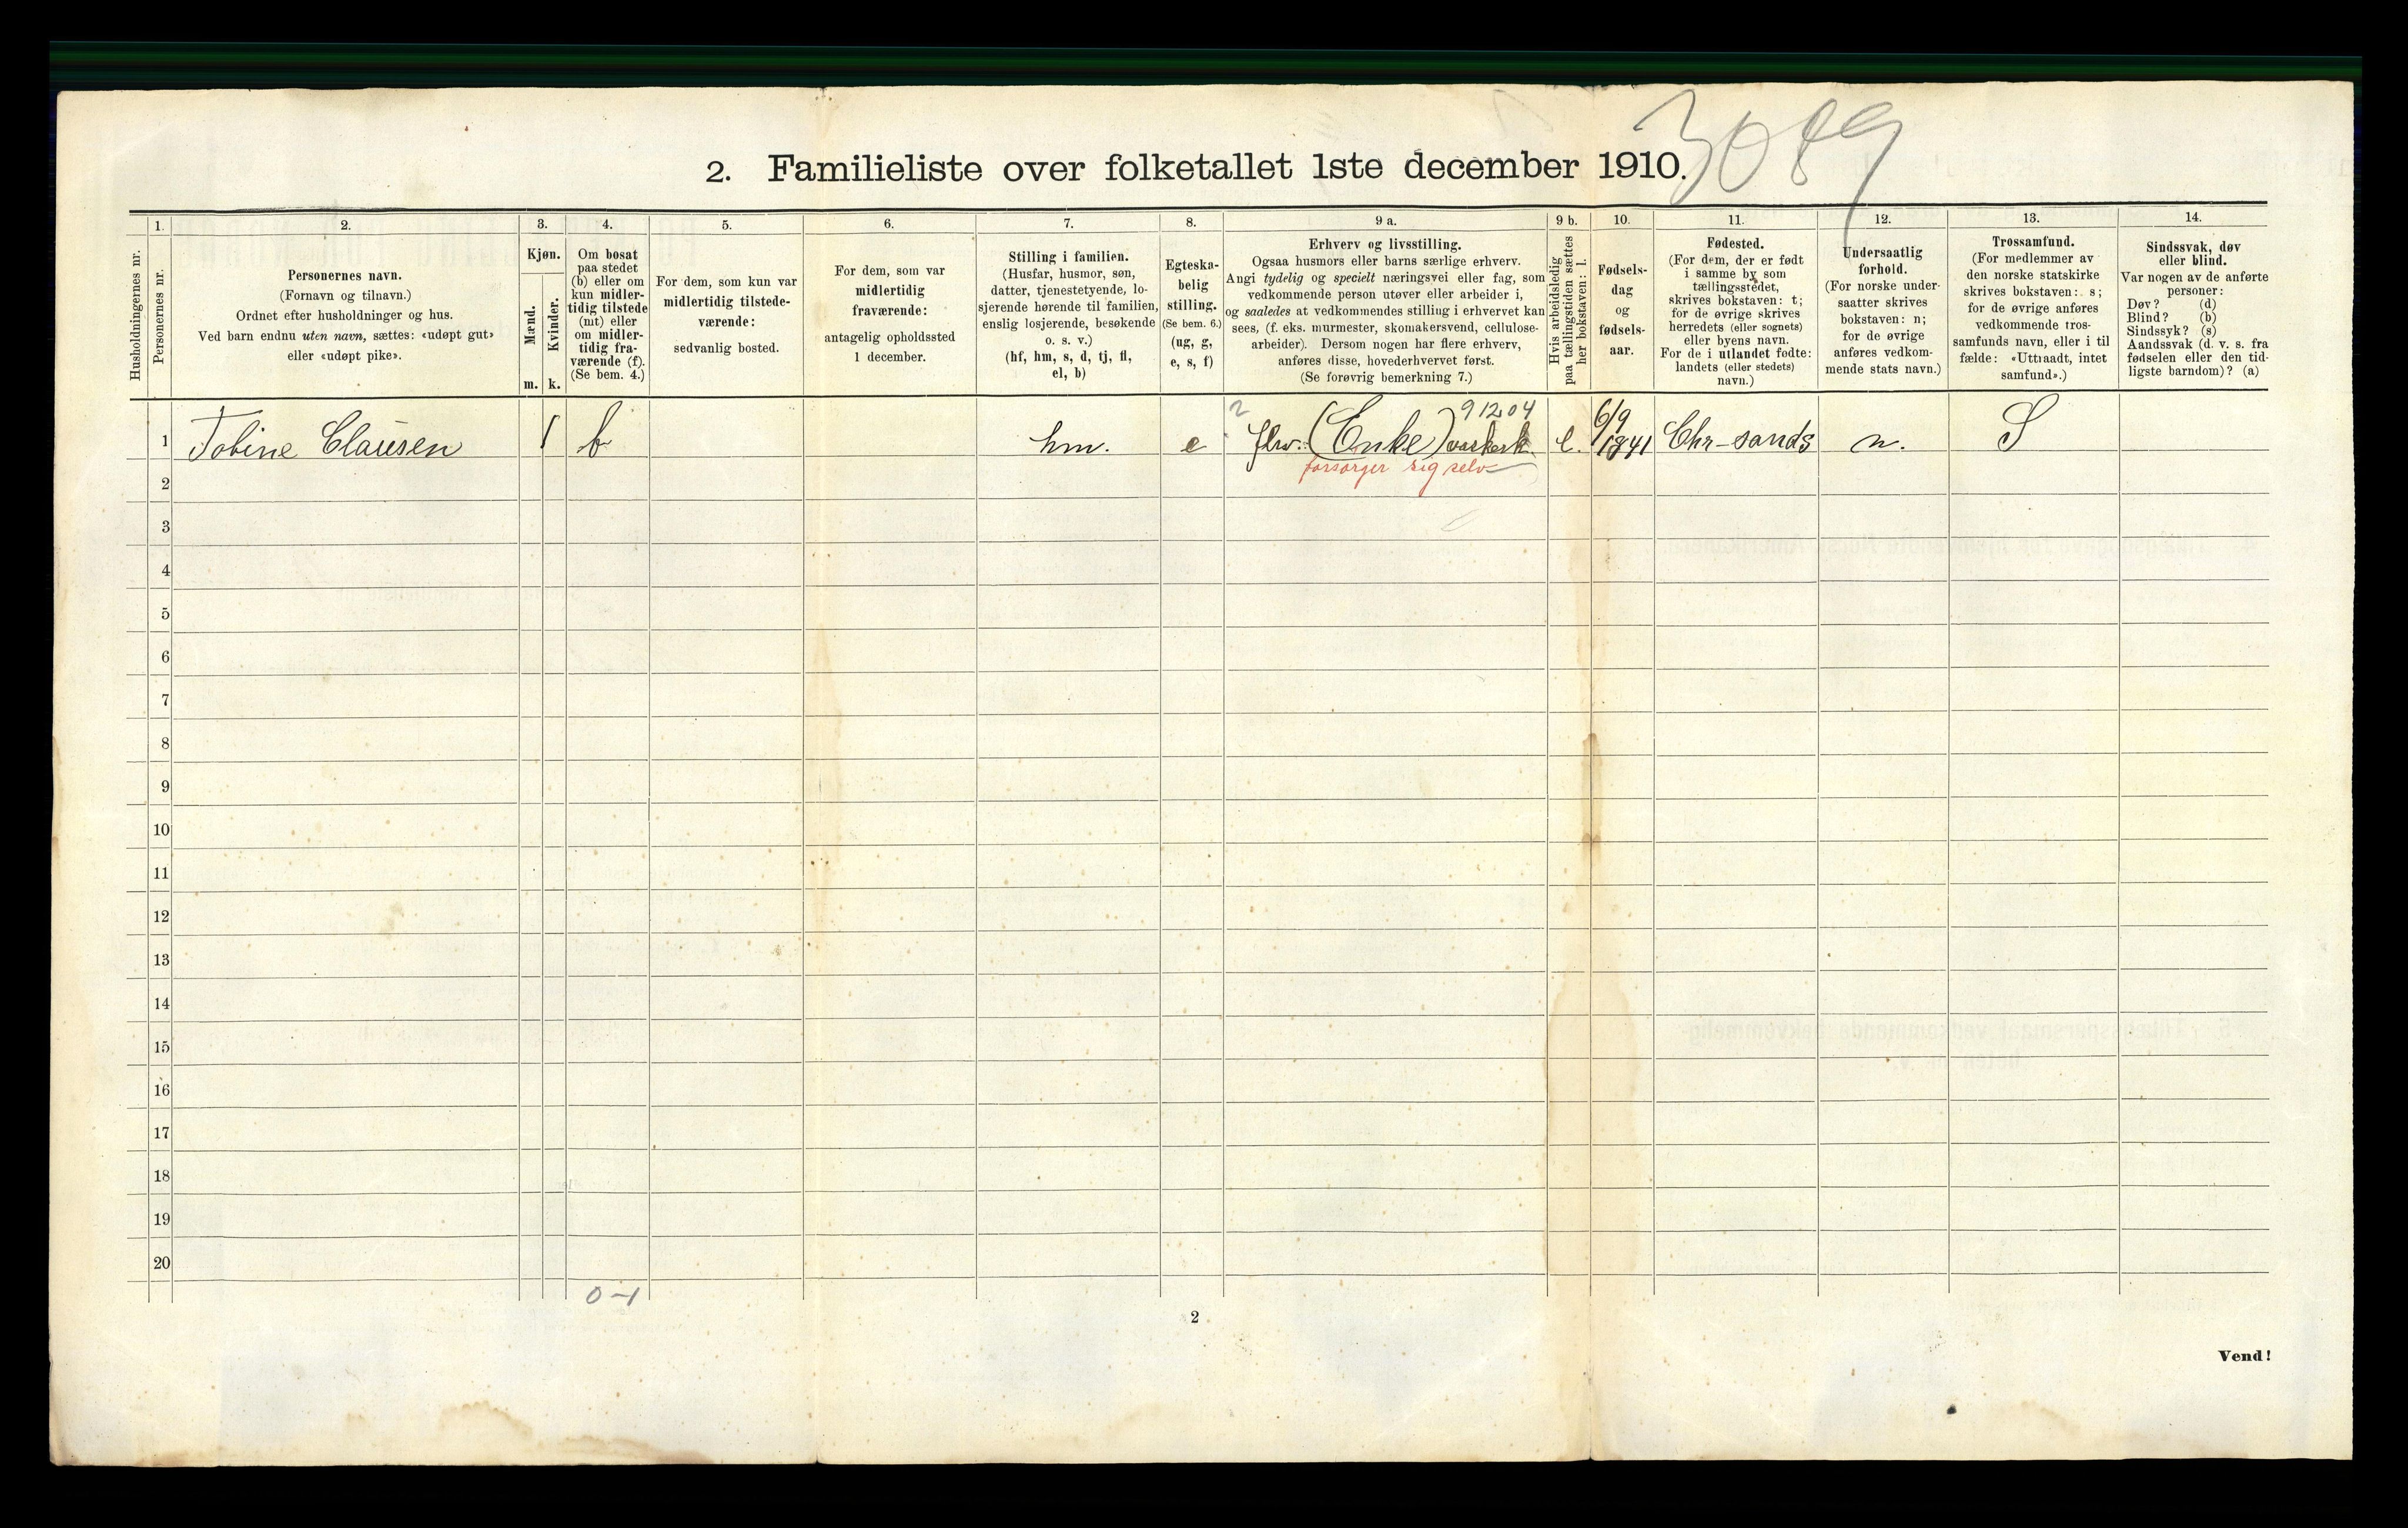 3089
2. Familieliste over folketallet 1ste december 1910.
Husholdningernes nr.
1.
Personernes nr.
2.
Personernes navn.
(Fornavn og tilnavn.)
Ordnet efter husholdninger og hus.
Ved barn endnu uten navn, sættes: «udøpt gut»
eller «udøpt pike».
3.
Kjøn.
Mænd.
Kvinder.
m. k.
4.
Om bosat
paa stedet
(b) eller om
kun midler-
tidig tilstede
(mt) eller
om midler-
tidig fra-
værende (f).
(Se bem. 4.)
5.
For dem, som kun var
midlertidig tilstede-
værende:
sedvanlig bosted.
6.
For dem, som var
midlertidig
fraværende:
antagelig opholdssted
1 december.
7.
Stilling i familien.
(Husfar, husmor, søn,
datter, tjenestetyende, lo-
sjerende hørende til familien,
enslig losjerende, besøkende
o. s. v.)
(hf, hm, s, d, tj, fl,
el, b)
8.
Egteska-
belig
stilling.
(Se bem. 6.)
(ug, g,
e, s, f)
9 a.
Erhverv og livsstilling.
Ogsaa husmors eller barns særlige erhverv.
Angi tydelig og specielt næringsvei eller fag, som
vedkommende person utøver eller arbeider i,
og saaledes at vedkommendes stilling i erhvervet kan
sees, (f. eks. murmester, skomakersvend, cellulose-
arbeider). Dersom nogen har flere erhverv,
anføres disse, hovederhvervet først.
(Se forøvrig bemerkning 7.)
9 b.
Hvis arbeidsledig
paa tællingstiden sættes
her bokstaven: l.
10.
Fødsels-
dag
og
fødsels-
aar.
11.
Fødested.
(For dem, der er født
i samme by som
tællingsstedet,
skrives bokstaven: t;
for de øvrige skrives
herredets (eller sognets)
eller byens navn.
For de i utlandet fødte:
landets (eller stedets)
navn.)
12.
Undersaatlig
forhold.
(For norske under-
saatter skrives
bokstaven: n;
for de øvrige
anføres vedkom-
mende stats navn.)
13.
Trossamfund.
(For medlemmer av
den norske statskirke
skrives bokstaven: s;
for de øvrige anføres
vedkommende tros-
samfunds navn, eller i til
fælde: «Uttraadt, intet
samfund».)
14.
Sindssvak, døv
eller blind.
Var nogen av de anførte
personer:
Døv? (d)
Blind? (b)
Sindssyk? (s)
Aandssvak (d. v. s. fra
fødselen eller den tid-
ligste barndom)? (a)
2 91204
1 Tobine Clausen 1 b hm. e (Enke) l. 6/9 1841 Chr-sands n. S
forsørger sig selv
2
3
4
5
6
7
8
9
10
11
12
13
14
15
16
17
18
19
20
0-1
2
Vend!